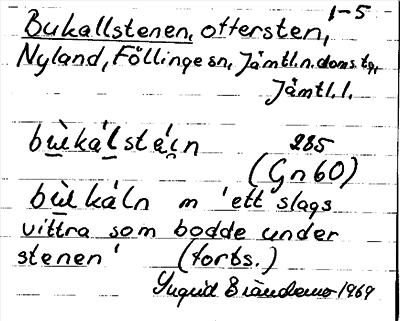 1-5
Bukallstenen, offersten,
Nyland, Föllinge sn, Jämtl.n.doms.tg,
Jämtl.l.
bùkáĺstéi̯n 285
(Gn 60)
bùkáln m 'ett slags
vittra som bodde under
stenen' (forts.)
Ingrid 1969